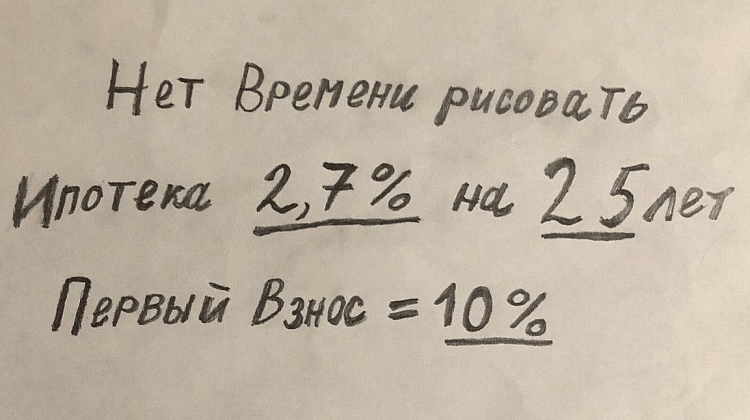 Нет Времени рисовать
Ипотека 2,7% на 25 лет
Первый Взнос = 10%